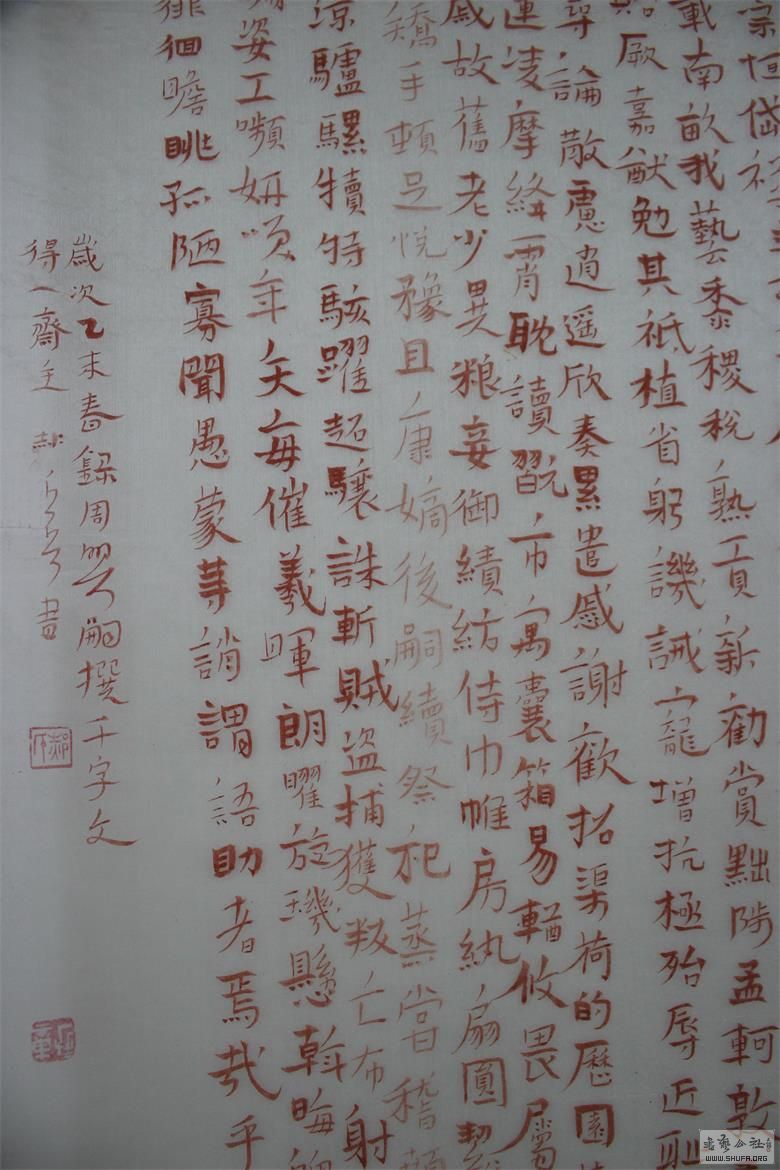 宗恒岱禪
載南畝我藝黍稷稅熟貢新勸賞黜陟孟軻敦
貽厥嘉猷勉其祗植省躬譏誡寵增抗極殆辱近恥
尋論散慮逍遥欣奏累遣慼謝歡招渠荷的歷園
運凌摩絳霄耽讀翫市寓囊箱易輶攸畏屬
戚故舊老少異粮妾御績紡侍巾帷房紈扇圓
矯手頓足悦豫且康嫡後嗣續祭祀蒸嘗稽
凉驢騾犢特駭躍超驤誅斬賊盗捕獲叛亡布射
姿工嚬妍笑年矢每催羲暉朗曜旋璣懸斡晦
徘徊瞻眺孤陋寡聞愚蒙等誚謂語助者焉哉乎
歲次乙未春録周興嗣撰千字文
得一齋主 書
書藝公社
WWW.SHUFA.ORG